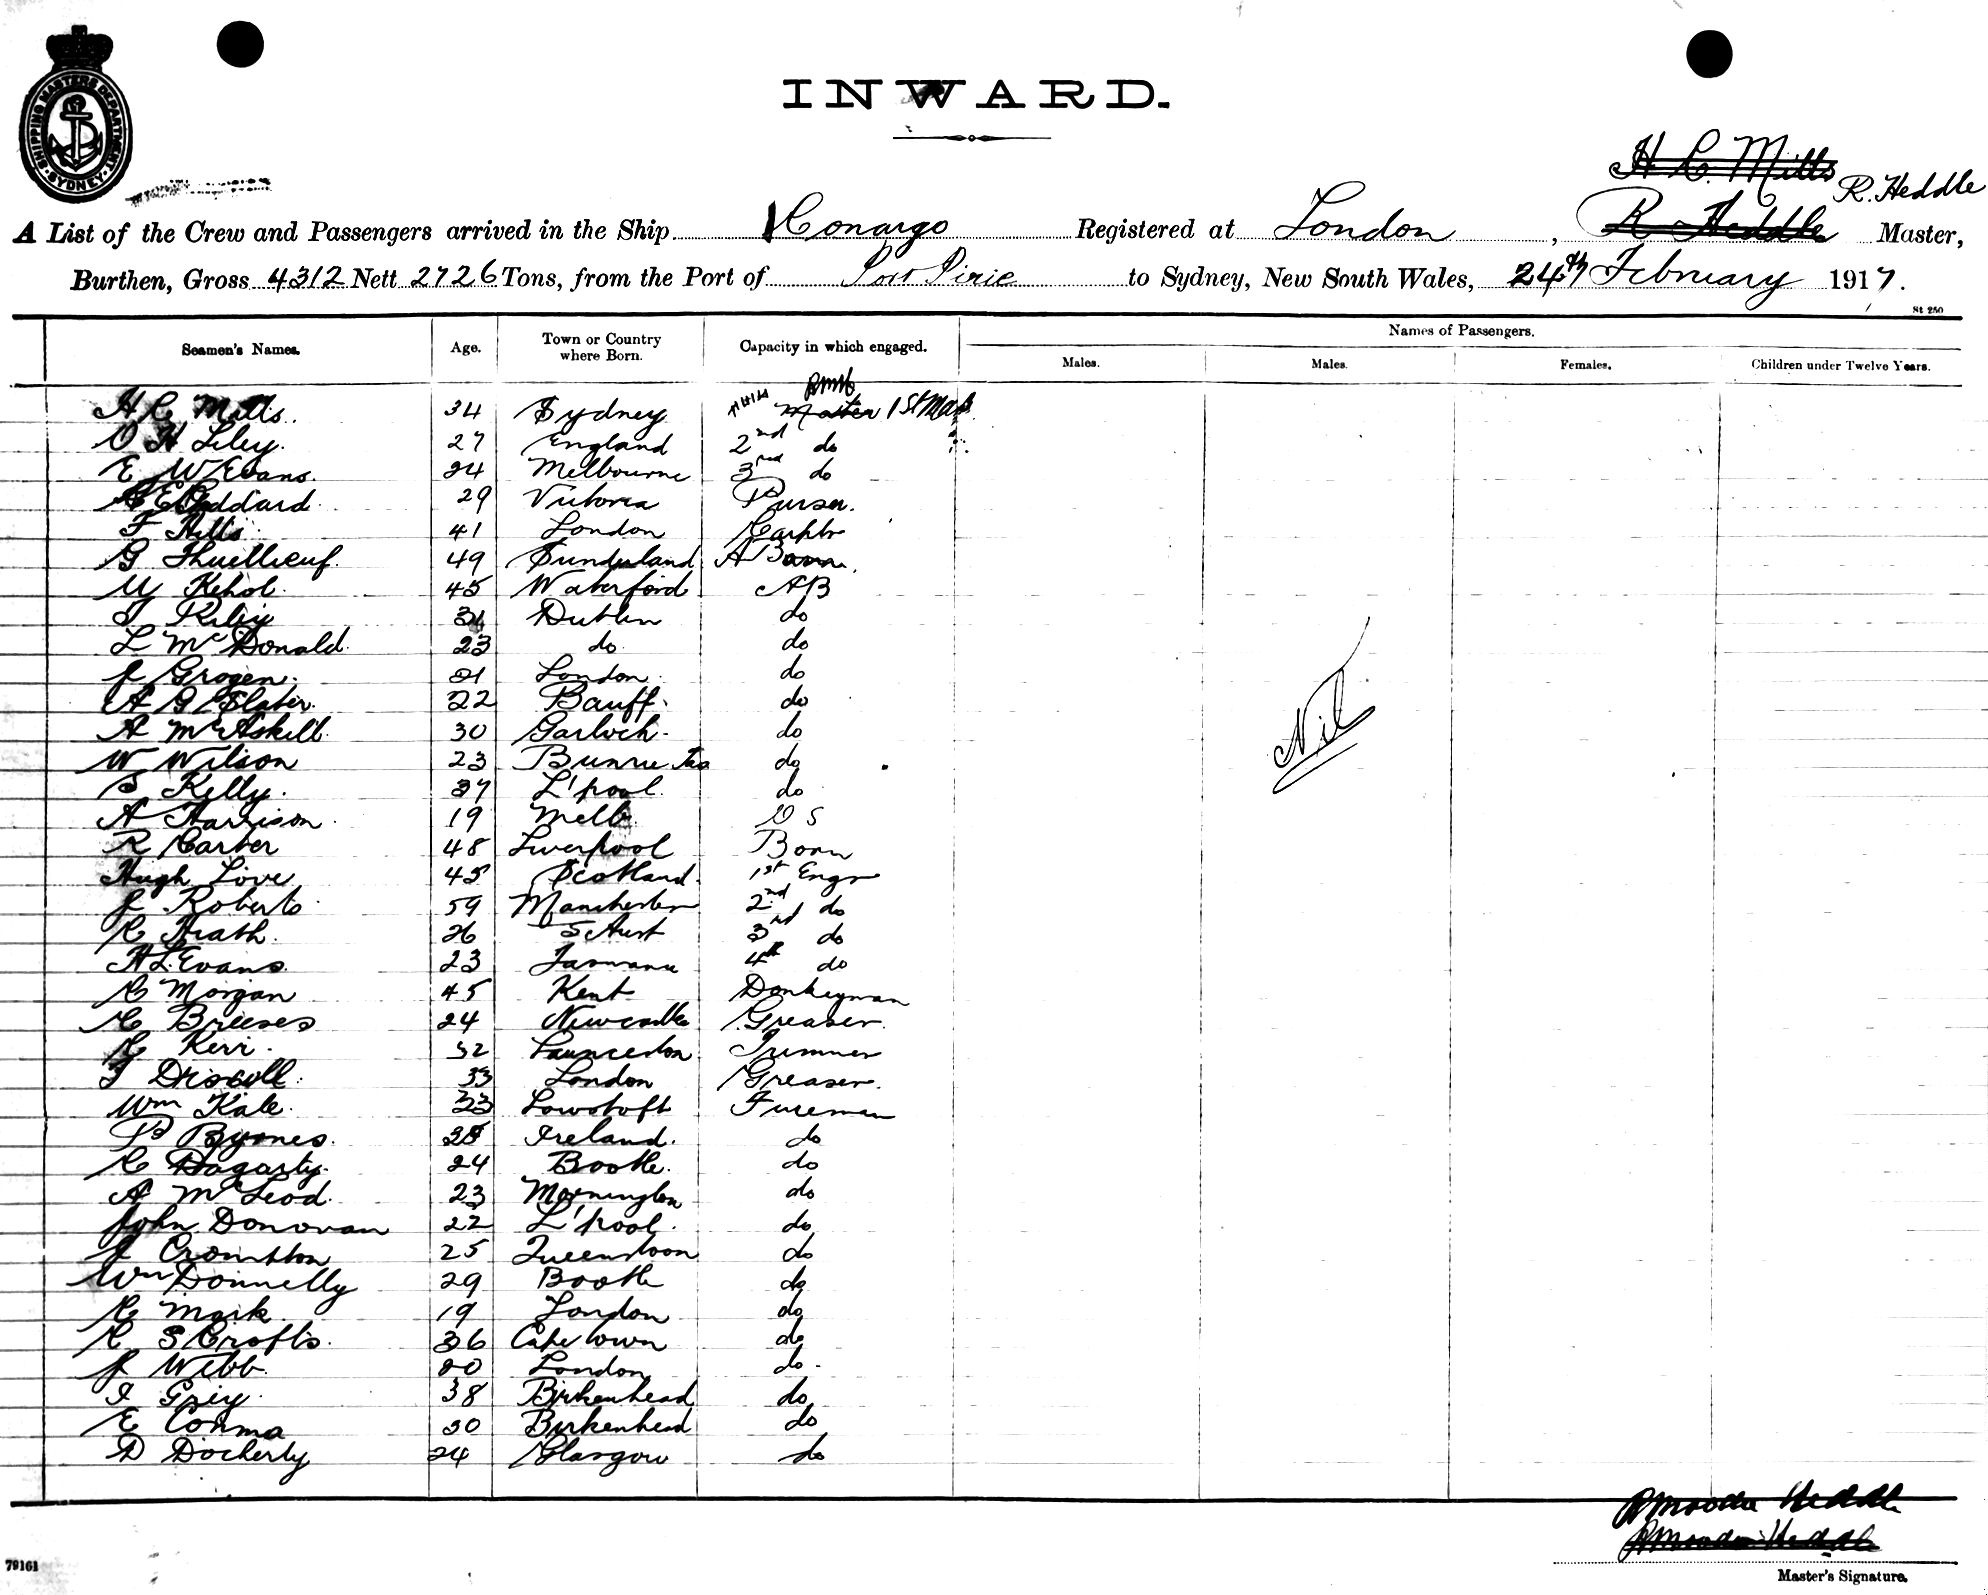 SHIPPING MASTERS DEPARTMENT
SYDNEY
INWARD.
H C Mitts
R. Heddle
A List of the Crew and Passengers arrived in the Ship Conargo Registered at London, R Heddle Master,
Burthen, Gross 4312 Nett 2726 Tons, from the Port of Port Pirie to Sydney, New South Wales, 24th February 1917.
St 250
Seamen's Names. Age. Town or Country where Born. Capacity in which engaged. Names of Passengers.
Males. Males. Females. Children under Twelve Years.
H C Mitts. 34 Sydney Master 1st Mate
O H Liley. 27 England 2nd do
E W Evans. 24 Melbourne 3rd do
Goddard 29 Victoria Purser.
F Hills 41 London Carptr
G 49 Sunderland
Kehol. 45 Waterford AB
T Riley Dublin do
L McDonald. 23 do do
J Grogen. 21 London. do
A G Slater. 22 Banff. do
A McAskill 30 Garloch. do
W Wilson 23 Burnie Tas do
S Kelly. 37 L'pool do
A Harrison 19 Melb. O S
R Carter 48 Liverpool Bosn
Hugh Love 45 Scotland. 1st Engr
J Roberts 59 Manchester 2nd do
C Heath. 26 S Aust 3rd do
H L Evans. 23 Tasmania 4th do
C Morgan 45 Kent Donkeyman
C Breeses 24 Newcastle Greaser.
C Kerr. 32 Launceston Trimmer
T Driscoll. 33 London Greaser.
Wm Kale. 23 Lowstoft Fireman
P Byrnes. 25 Ireland. do
C Hagarty. 24 Bootle. do
A McLeod. 23 Mornington do
John Donovan 22 L'pool. do
J Crombton 25 Queenstoon do
Wm Donnelly 29 Bootle do
C Mark 19 London do
C S Crofts. 36 Cape Town do
J Webb. 20 London do
I Grey. 38 Birkenhead do
E Conma 30 Birkenhead do
D Docherty 24 Glasgow do
Nil
R Moodie Heddle
R Moodie Heddle
79161
Master's Signature.